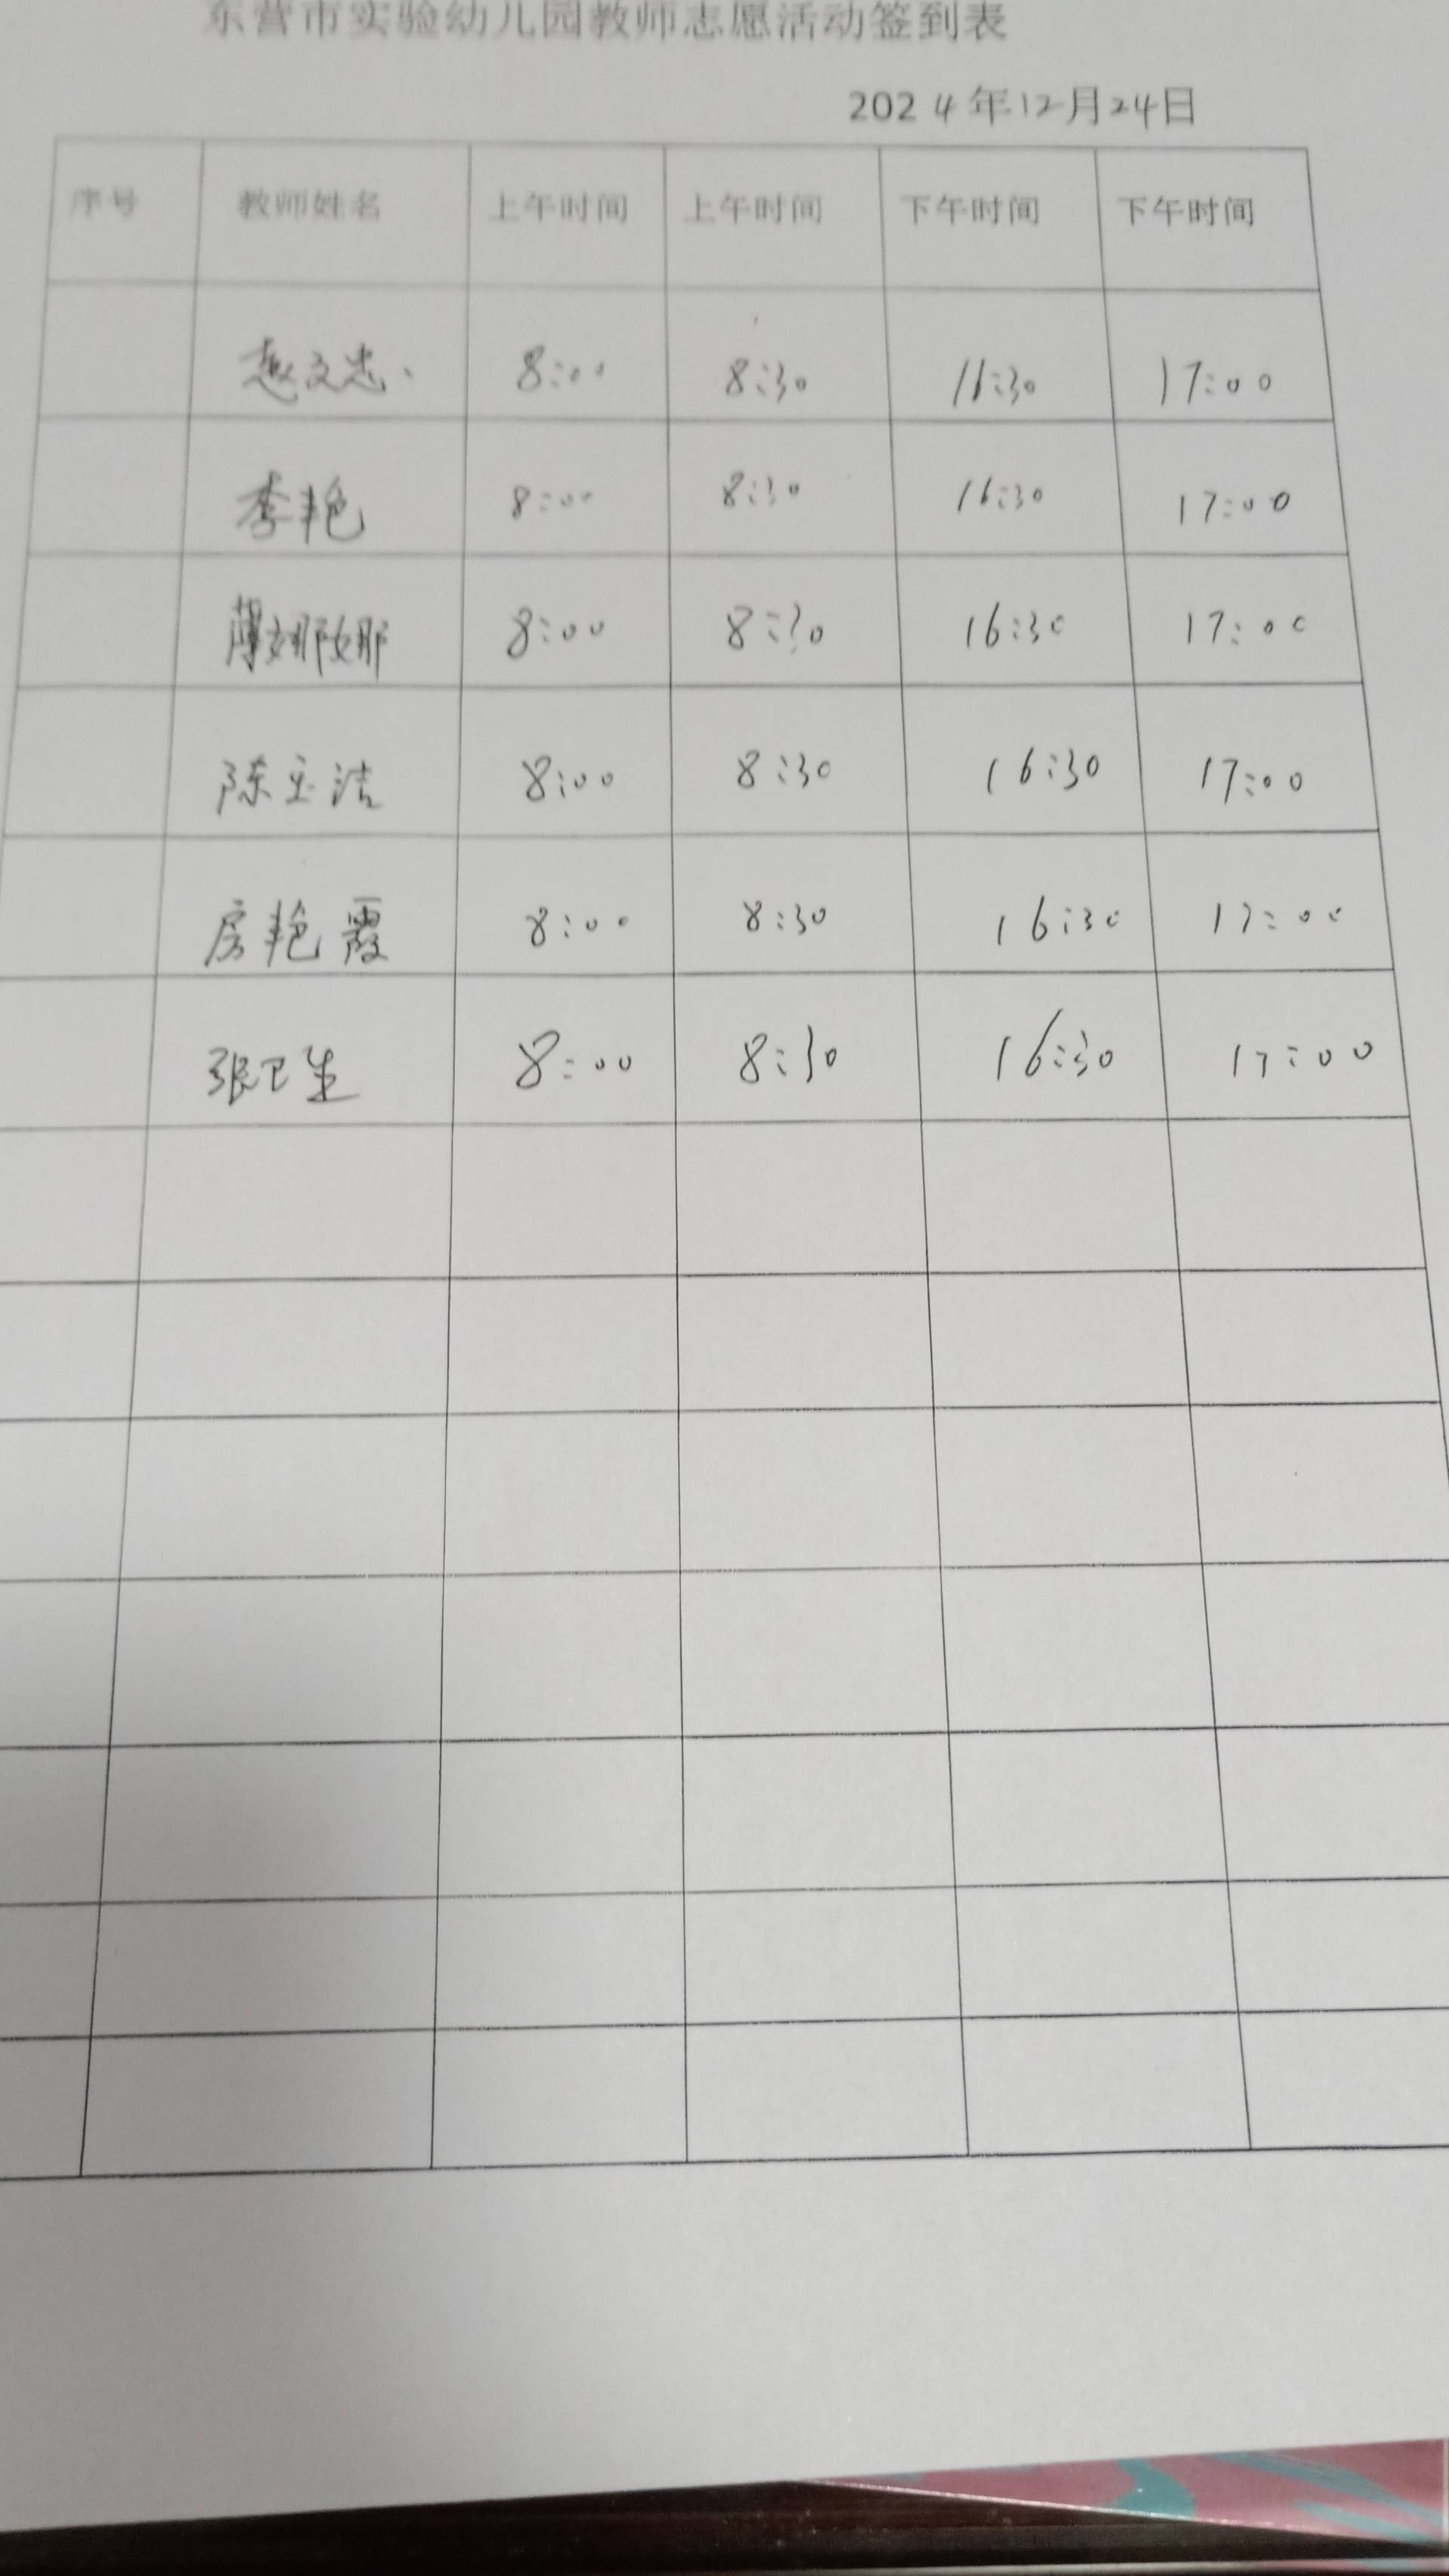 东营市实验幼儿园教师志愿活动签到表
2024年12月24日
序号 教师姓名 上午时间 上午时间 下午时间 下午时间
赵文忠 8:00 8:30 16:30 17:00
李艳 8:00 8:30 16:30 17:00
薄娜娜 8:00 8:30 16:30 17:00
陈玉洁 8:00 8:30 16:30 17:00
房艳霞 8:00 8:30 16:30 17:00
张卫生 8:00 8:30 16:30 17:00